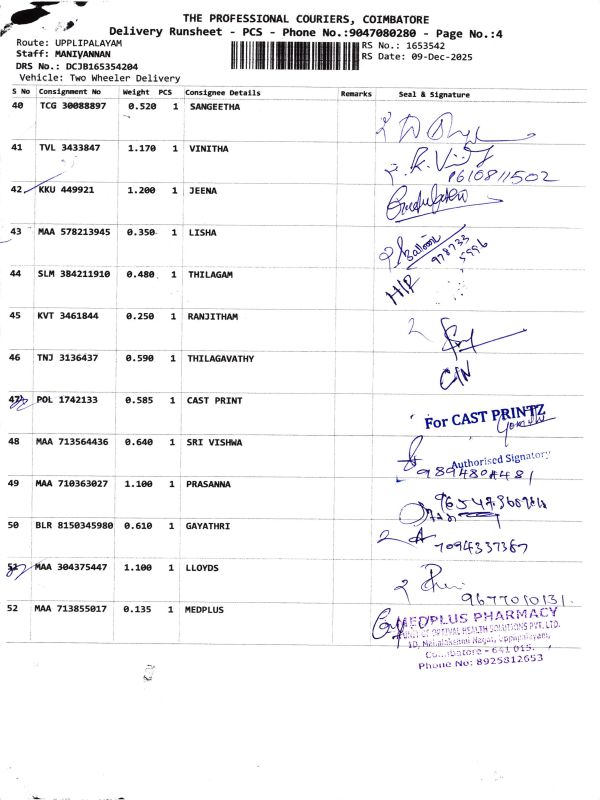 THE PROFESSIONAL COURIERS, COIMBATORE
Delivery Runsheet - PCS - Phone No.:9047080280 - Page No.:4
Route: UPPLIPALAYAM
Staff: MANIVANNAN
DRS No.: DCJB165354204
Vehicle: Two Wheeler Delivery
RS No.: 1653542
RS Date: 09-Dec-2025
S No Consignment No Weight PCS Consignee Details Remarks Seal & Signature
40 TCG 30088897 0.520 1 SANGEETHA
41 TVL 3433847 1.170 1 VINITHA
9610811502
42 KKU 449921 1.200 1 JEENA
43 MAA 578213945 0.350 1 LISHA
978733
5996
44 SLM 384211910 0.480 1 THILAGAM
H/R
45 KVT 3461844 0.250 1 RANJITHAM
46 TNJ 3136437 0.590 1 THILAGAVATHY
C/N
47 POL 1742133 0.585 1 CAST PRINT
For CAST PRINTZ
Authorised Signatory
48 MAA 713564436 0.640 1 SRI VISHWA
49 MAA 710363027 1.100 1 PRASANNA
50 BLR 8150345980 0.610 1 GAYATHRI
7094337367
51 MAA 304375447 1.100 1 LLOYDS
9677010131
52 MAA 713855017 0.135 1 MEDPLUS
MEDPLUS PHARMACY
UNIT OF OPTIVAL HEALTH SOLUTIONS PVT. LTD.
1D, Mahalakshmi Nagar, Uppilipalayam,
Coimbatore - 641 015.
Phone No: 8925812653